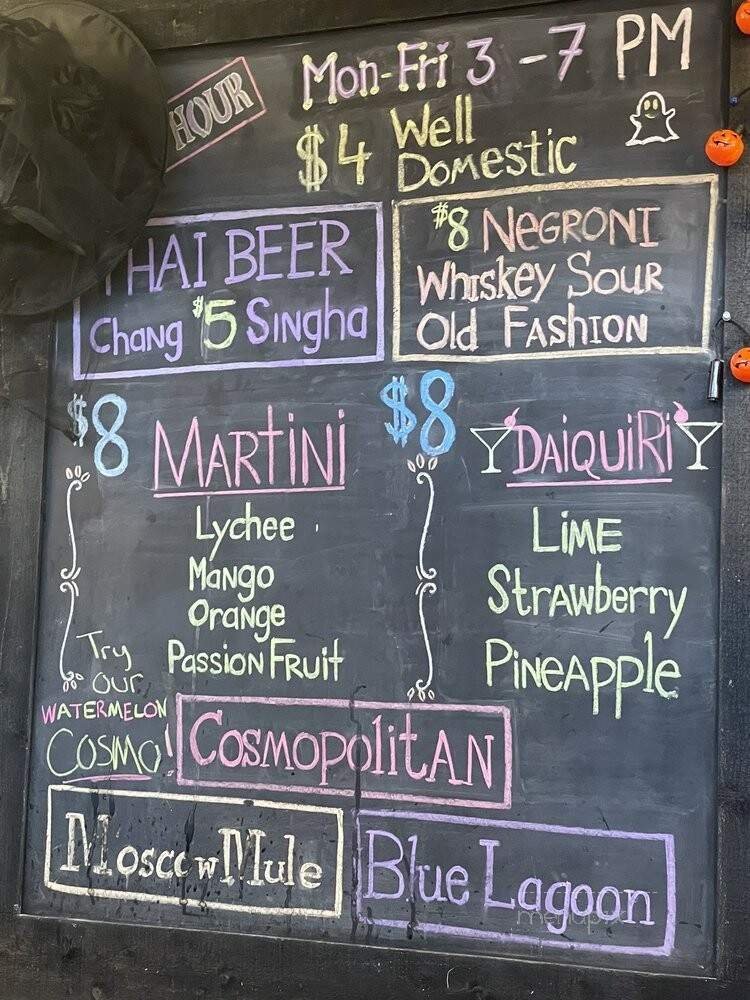 HOUR
Mon-Fri 3-7 PM
$4 Well
Domestic
THAI BEER
Chang $5 Singha
$8 NEGRONI
Whiskey Sour
Old FASHION
$8 MARTINI
Lychee
Mango
Orange
Passion Fruit
$8 DAIQUIRI
LIME
Strawberry
PINEAPPle
Try
our
WATERMELON
COSMO!
COSMOPOlitAN
Moscow Mule
Blue Lagoon
menupix